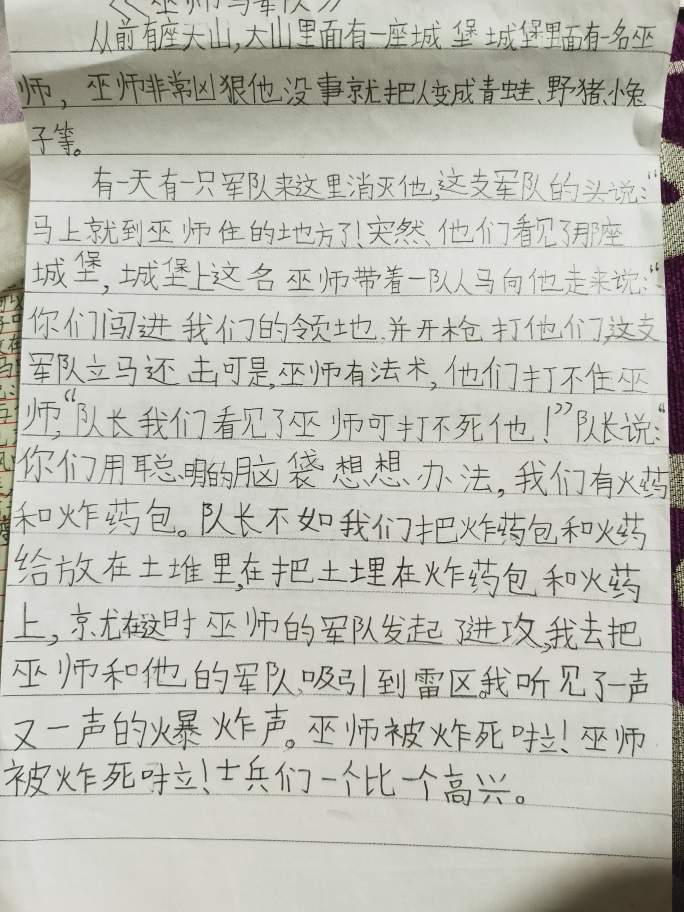 《巫师与军队》
从前有座大山,大山里面有一座城堡城堡里面有一名巫
师,巫师非常凶狠他没事就把人变成青蛙、野猪、小兔
子等。
有一天有一只军队来这里消灭他,这支军队的头说:“
马上就到巫师住的地方了!突然、他们看见了那座
城堡,城堡上这名巫师带着一队人马向他走来说:“
你们闯进我们的领地,并开枪打他们,这支
军队立马还击可是,巫师有法术,他们打不住巫
师,“队长我们看见了巫师可打不死他!”队长说:“
你们用聪明的脑袋想想办法,我们有火药
和炸药包。队长不如我们把炸药包和火药
给放在土堆里,在把土埋在炸药包和火药
上,就在这时巫师的军队发起了进攻,我去把
巫师和他的军队、吸引到雷区。我听见了一声
又一声的爆炸声。巫师被炸死啦!巫师
被炸死啦!士兵们一个比一个高兴。